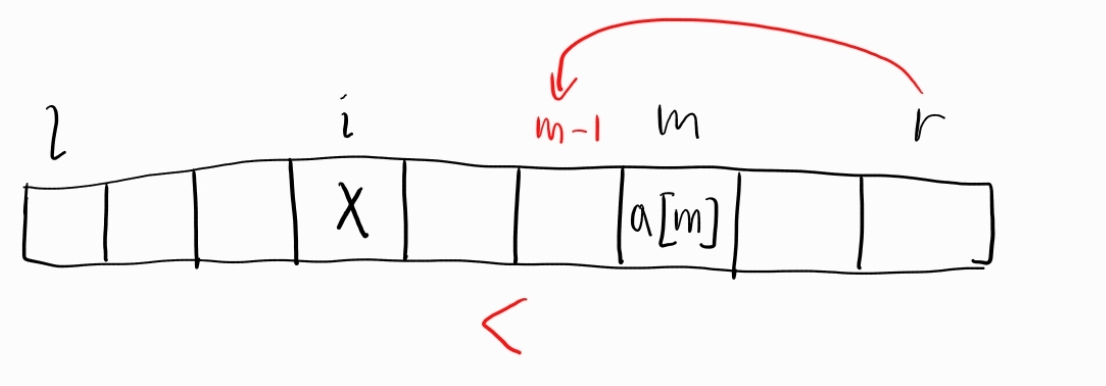 l i m-1 m r
X a[m]
<